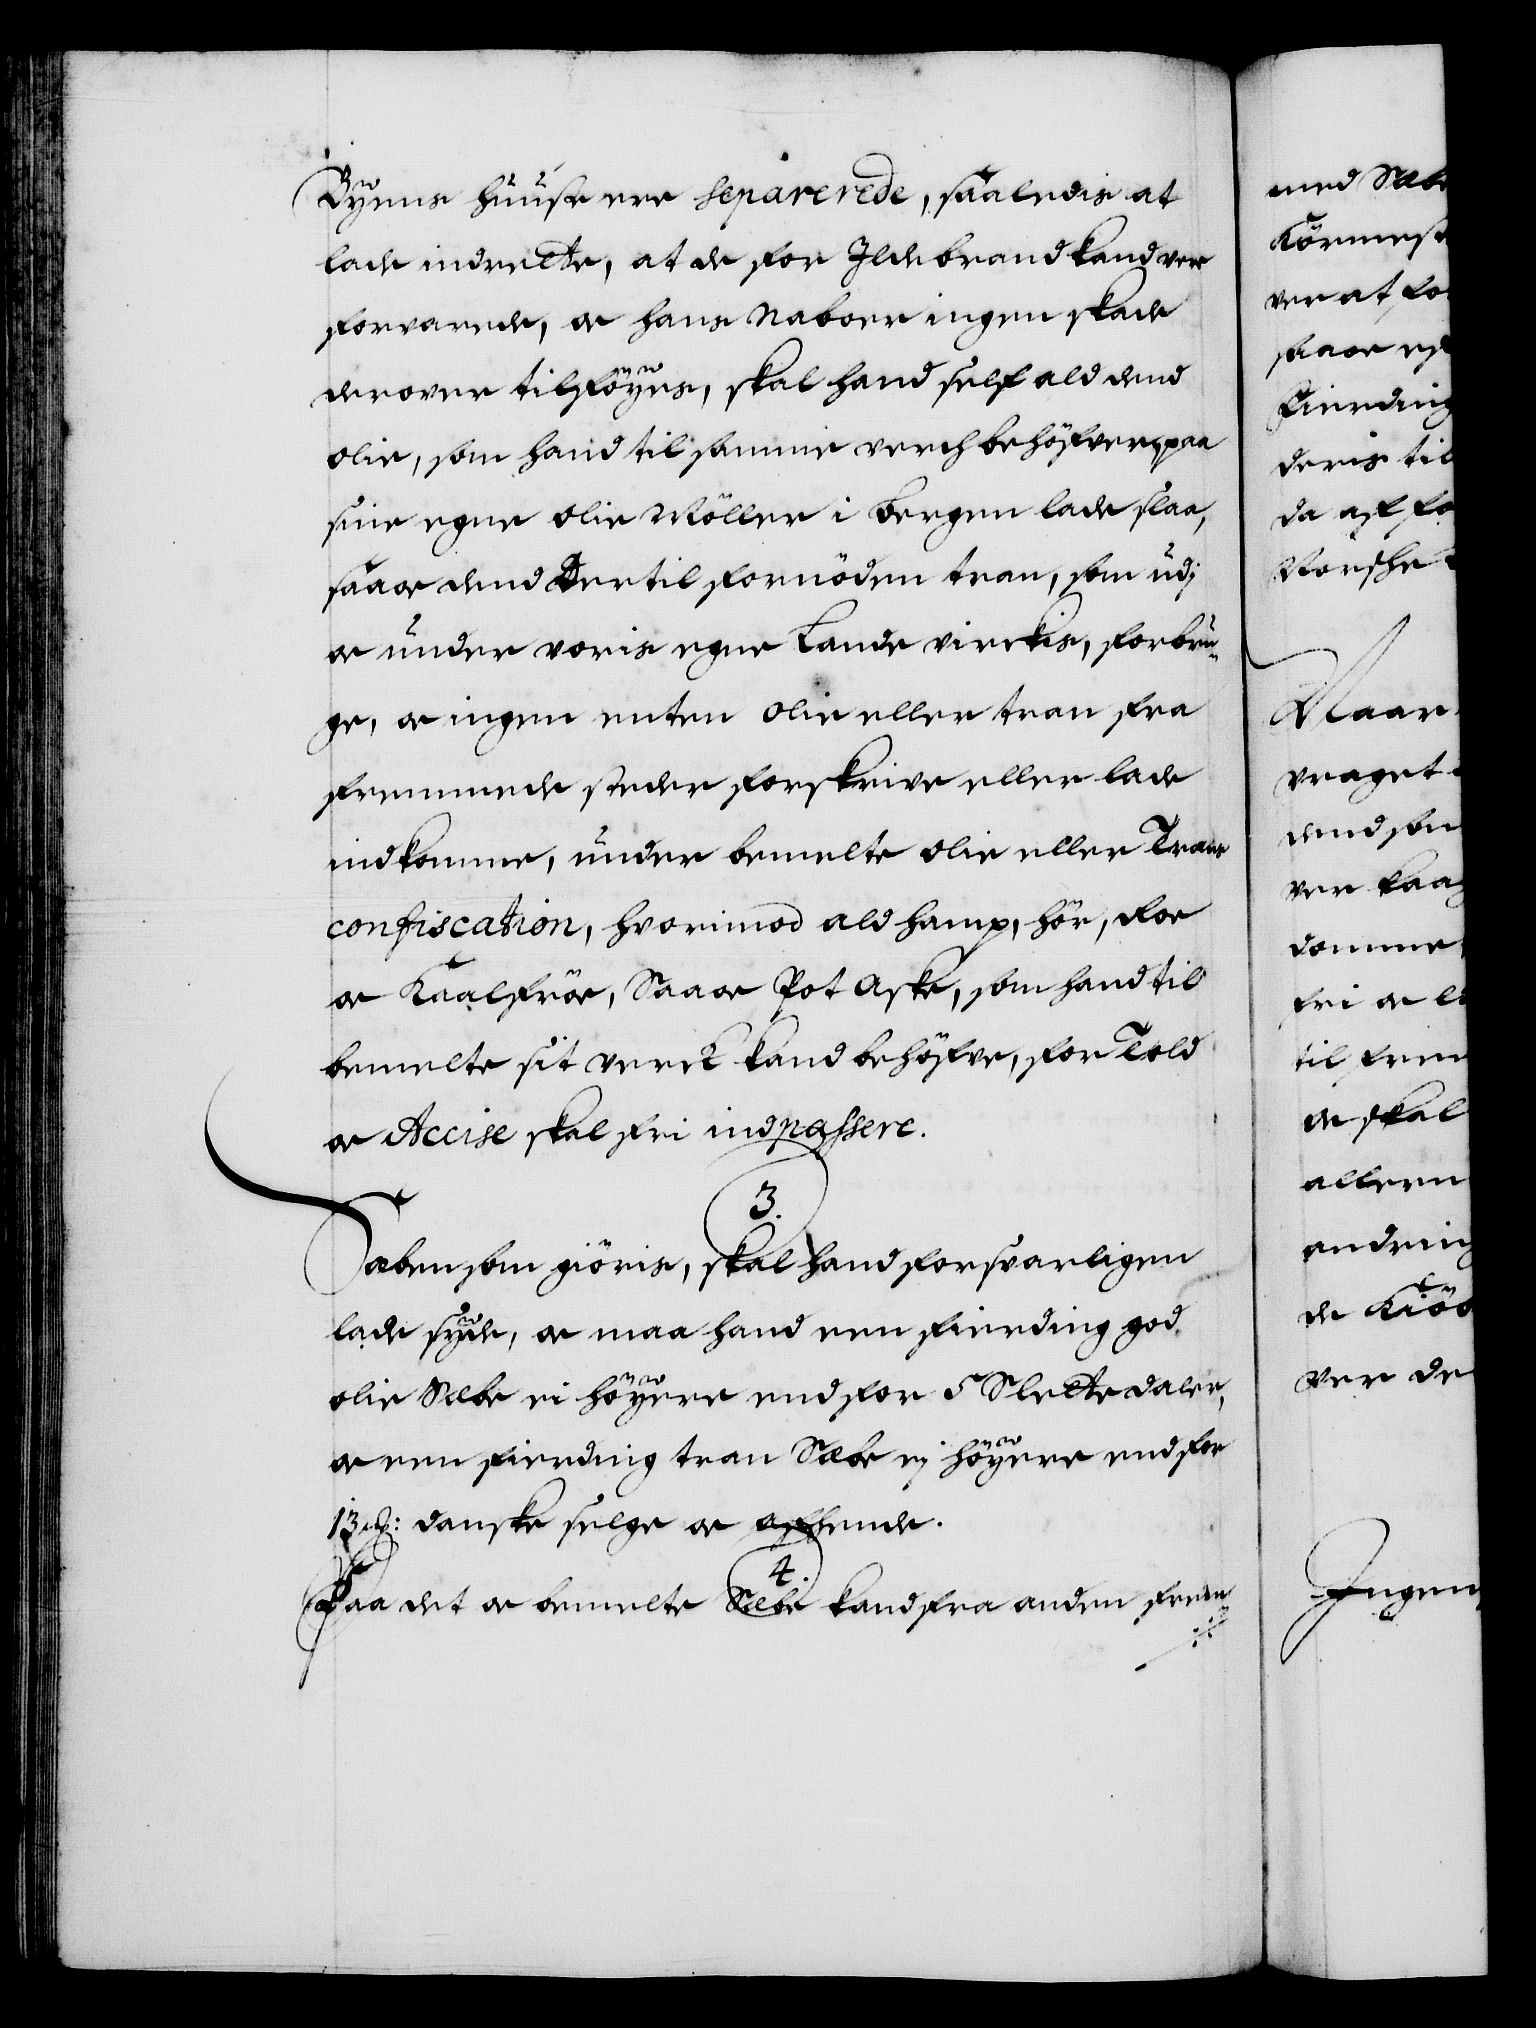 Byens huuse ere separerede, saaledis at
lade indrette, at de for Ildebrand kand vere
forvarede, oc hans Naboer ingen skade
derover tilföyes, skal hand self ald dend
olie, som hand til samme verch behöfver, paa
sine egne olie Möller i Bergen lade slaa,
saa oc dend dertil fornöden tran, som udj
oc under voris egne Lande virckis, forbru-
ge, oc ingen enten olie eller tran fra
fremmede steder forskrive eller lade
indkomme, under bemelte olie eller Trans
confiscation, hvorimod ald hamp, hör, Roe
oc Kaalfröe, Saa oc Pot Aske, som hand til
bemelte sit verck kand behöfve, for Told
oc Accise skal fri indpassere.
3.
Sæben som giöris, skal hand forsvarligen
lade syde, oc maa hand een fierding god
olie Sæbe ei höyere end for 5 Slette daler,
oc een fierding tran Sæbe ej höyere end for
13 ₰: danske selge oc afhende.
4.
Paa det oc bemelte Sæbe kand fra anden frem-
med Sæbe
ver at for
Fierding
deris til
da aff fo
Naar
vraget
dend som
domme
fri oc
til frem
oc skal
allern
andring
de Kiöb
ver de
Ingen